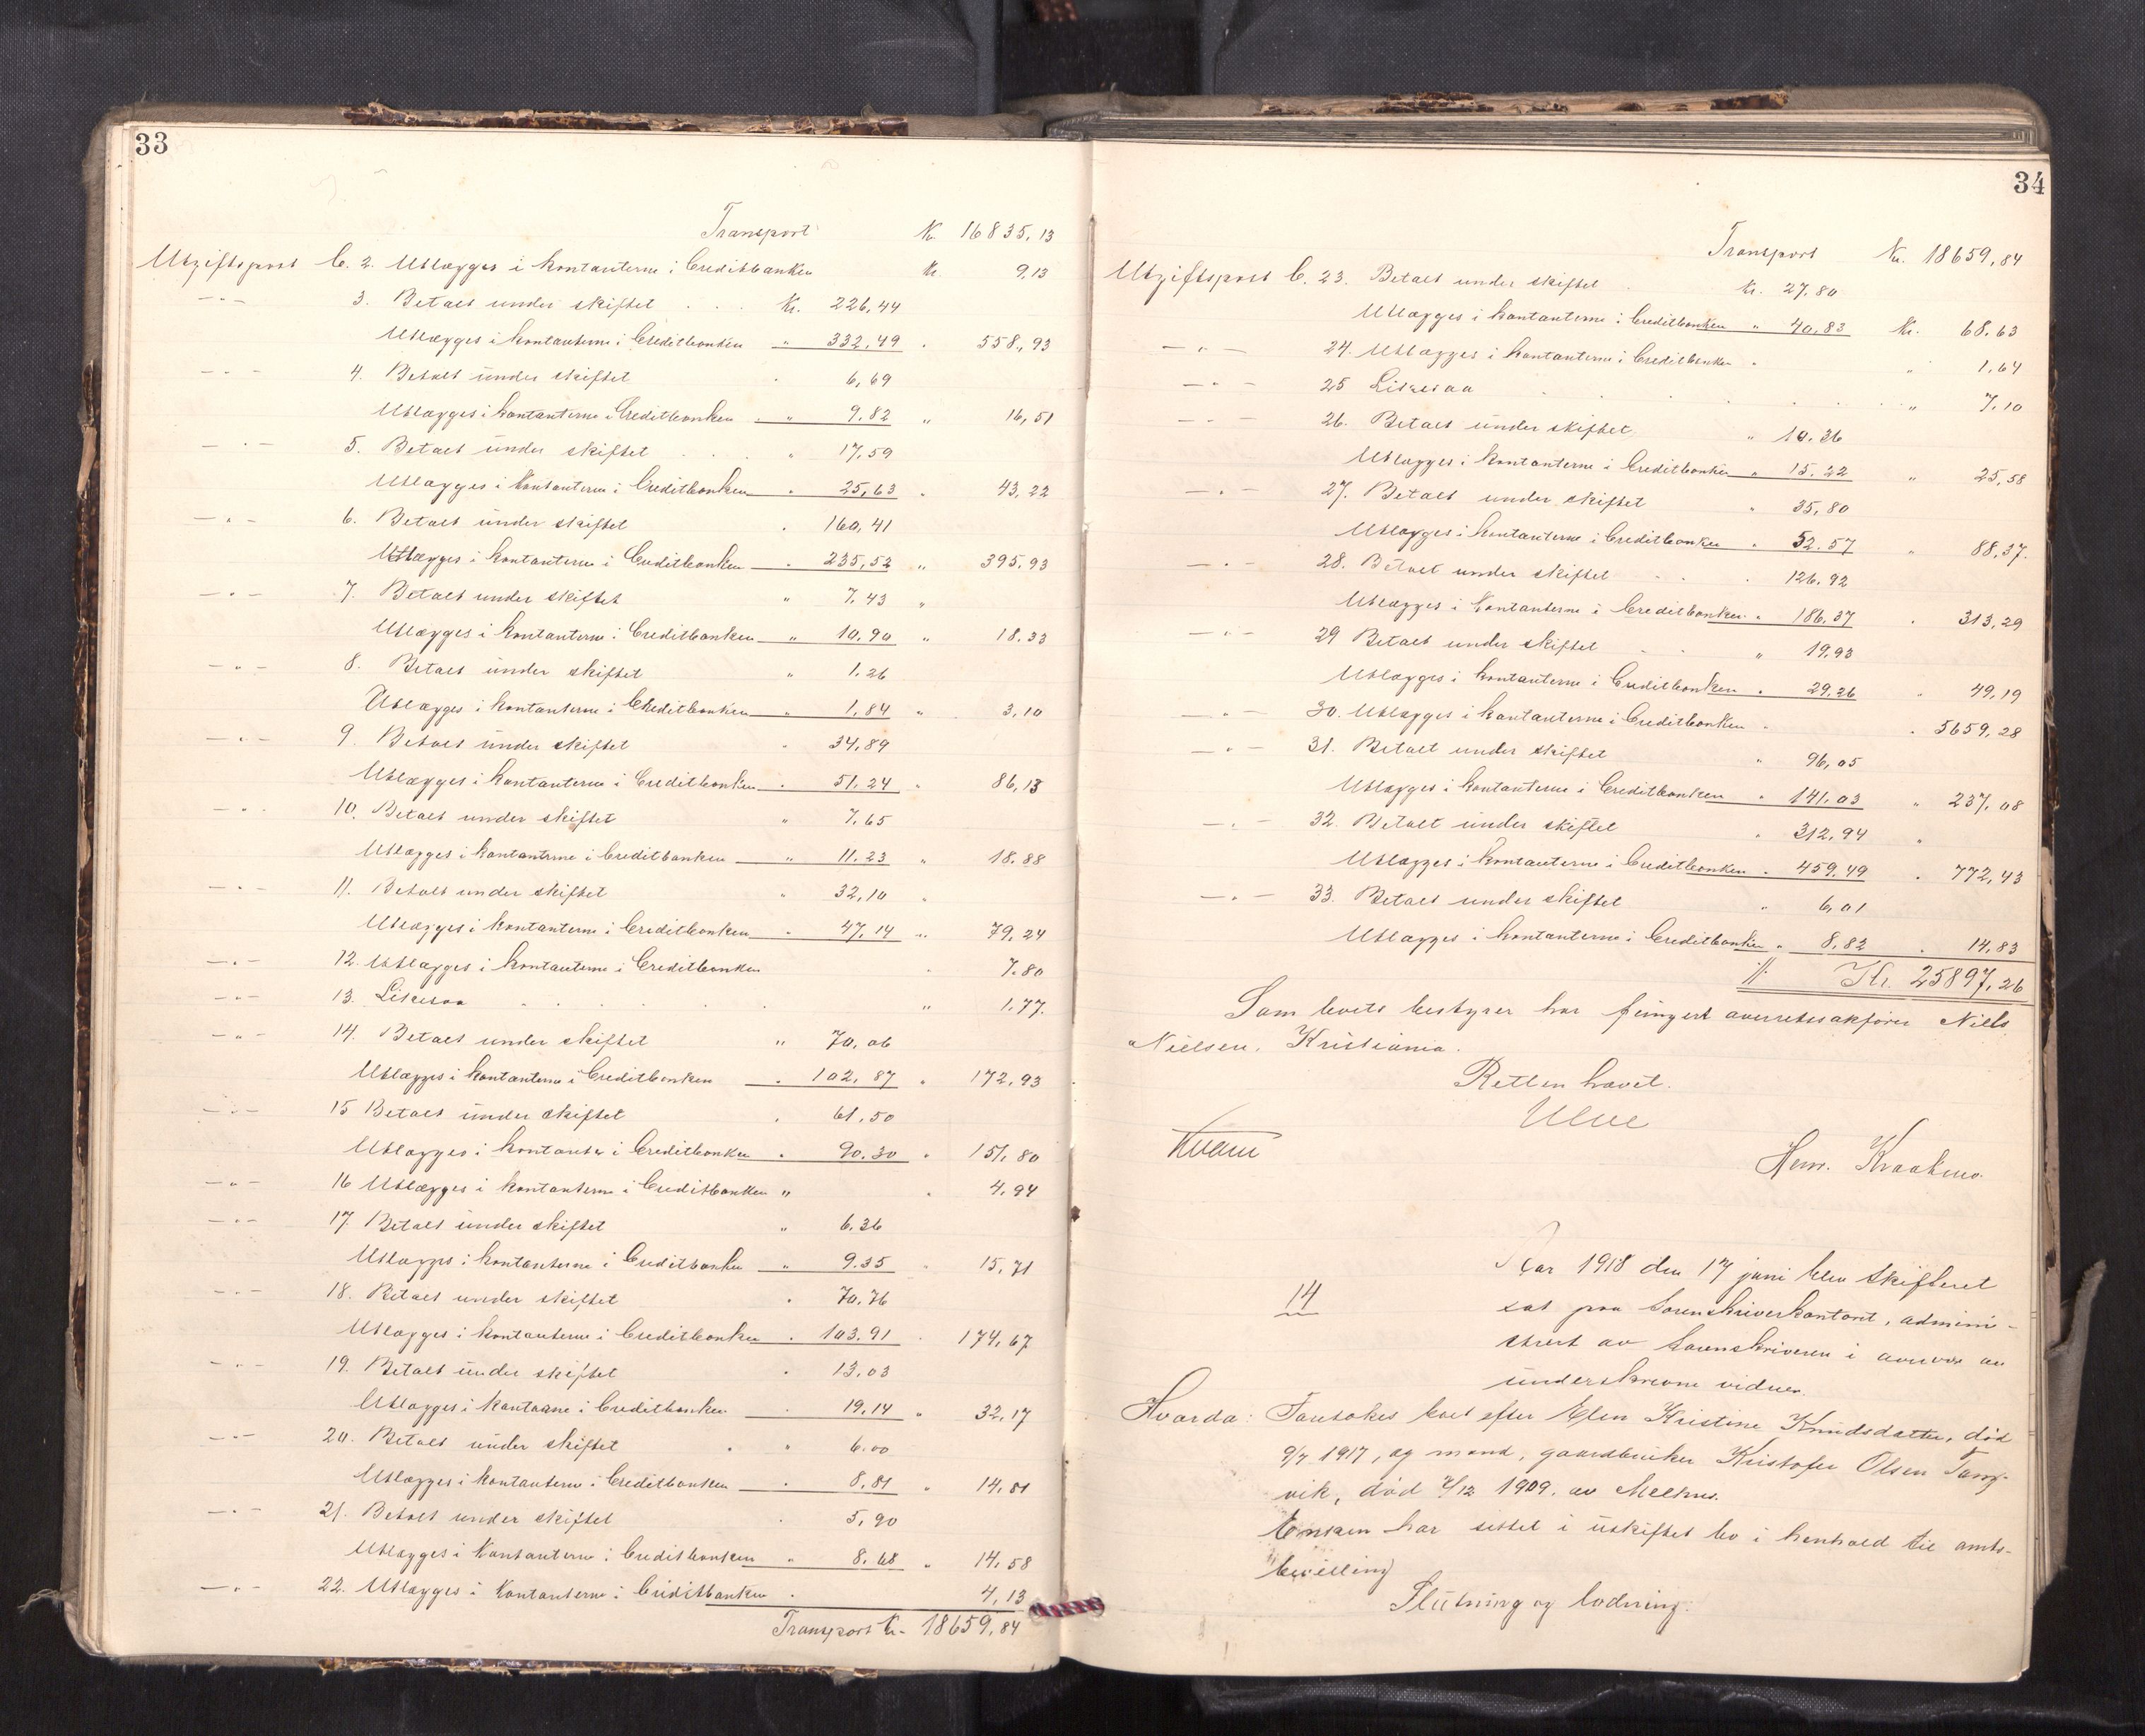 33
Transport Kr. 16835,13
Utgiftspost C. 2. Utlægges i kontanterne i Creditbanken Kr. 9,13
—„— 3. Betalt under skiftet Kr. 226,44
Utlægges i kontanterne i Creditbanken „ 332,49 „ 558,93
—„— 4. Betalt under skiftet „ 6,69
Utlægges i kontanterne i Creditbanken „ 9,82 „ 16,51
—„— 5. Betalt under skiftet „ 17,59
Utlægges i kontanterne i Creditbanken „ 25,63 „ 43,22
—„— 6. Betalt under skiftet „ 160,41
Utlægges i kontanterne i Creditbanken „ 235,52 „ 395,93
—„— 7. Betalt under skiftet „ 7,43 „
Utlægges i kontanterne i Creditbanken „ 10,90 „ 18.33
—„— 8. Betalt under skiftet „ 1,26
Utlægges i kontanterne i Creditbanken „ 1,84 „ 3,10
—„— 9. Betalt under skiftet „ 34,89
Utlægges i kontanterne i Creditbanken „ 51,24 „ 86,13
—„— 10. Betalt under skiftet „ 7,65
Utlægges i kontanterne i Creditbanken „ 11.23 „ 18.88
—„— 11. Betalt under skiftet „ 32,10 „
Utlægges i kontanterne i Creditbanken „ 47,14 „ 79,24
—„— 12. Utlægges i kontanterne i Creditbanken „ 7.80
—„— 13. Likesaa „ 1.77.
—„— 14. Betalt under skiftet „ 70,06
Utlægges i kontanterne i Creditbanken „ 102,87 „ 172,93
—„— 15 Betalt under skiftet „ 61,50
Utlægges i kontanter i Creditbanken „ 90.30 „ 151,80
—„— 16 Utlægges i kontanterne i Creditbanken „ „ 4.94
—„— 17. Betalt under skiftet „ 6.36
Utlægges i kontanterne i Creditbanken „ 9.35 „ 15,71
—„— 18. Betalt under skiftet „ 70.76
Utlægges i kontanterne i Creditbanken „ 103.91 „ 174,67
—„— 19. Betalt under skiftet „ 13,03
Utlægges i kontanne i Creditbanken „ 19,14 „ 32,17
—„— 20. Betalt under skiftet „ 6.00
Utlægges i kontanterne i Creditbanken „ 8,81 „ 14,81
—„— 21. Betalt under skiftet „ 5,90
Utlægges i kontanterne i Creditbanken „ 8,68 „ 14,58
—„— 22. Utlægges i kontanterne i Creditbanken „ 4,13
Transport Kr. 18659,84
34
Transport Kr. 18659,84
Utgiftspost C. 23. Betalt under skiftet Kr. 27,80
Utlægges i kontanterne i Creditbanken „ 40,83 Kr. 68,63
—„— 24. Utlægges i kontanterne i Creditbanken „ „ 1,64
—„— 25 Likesaa „ 7.10
—„— 26. Betalt under skiftet „ 10,36
Utlægges i kontanterne i Creditbanken „ 15.22 „ 25,58
—„— 27. Betalt under skiftet „ 35,80
Utlægges i kontanterne i Creditbanken „ 52.57 „ 88,37.
—„— 28. Betalt under skiftet „ 126,92
Utlægges i kontanterne i Creditbanken „ 186,37 „ 313,29
—„— 29 Betalt under skiftet „ 19,93
Utlægges i kontanterne i Creditbanken „ 29,26 „ 49,19
—„— 30. Utlægges i kontanterne i Creditbanken „ „ 5659,28
—„— 31. Betalt under skiftet „ 96,05
Utlægges i kontanterne i Creditbanken „ 141,03 „ 237,08
—„— 32. Betalt under skiftet „ 312,94 „
Utlægges i kontanterne i Creditbanken „ 459,49 „ 772,43
—„— 33. Betalt under skiftet „ 6,01
Utlægges i kontanterne i Creditbanken „ 8,82 „ 14,83
//. Kr. 25897,26
Som boets bestyrer har fungert overretssakfører Niels
Nielsen, Kristiania.
Retten hævet.
Ulve
Kvam Hem. Kraakmo.
Aar 1918 den 17 juni blev skifteret
14 sat paa Sorenskriverkontoret, admini-
strert av Sorenskriveren i overvær av
underskrevne vidner.
Hvorda: Foretokes boet efter Elen Kristine Knudsdatter, død
9/7 1917, og mand, gaardbruker Kristofer Olsen Tang-
vik, død 4/12 1909, av Melhus.
Enken har sittet i uskiftet bo i henhold til amts-
bevilling
Slutning og lodning: